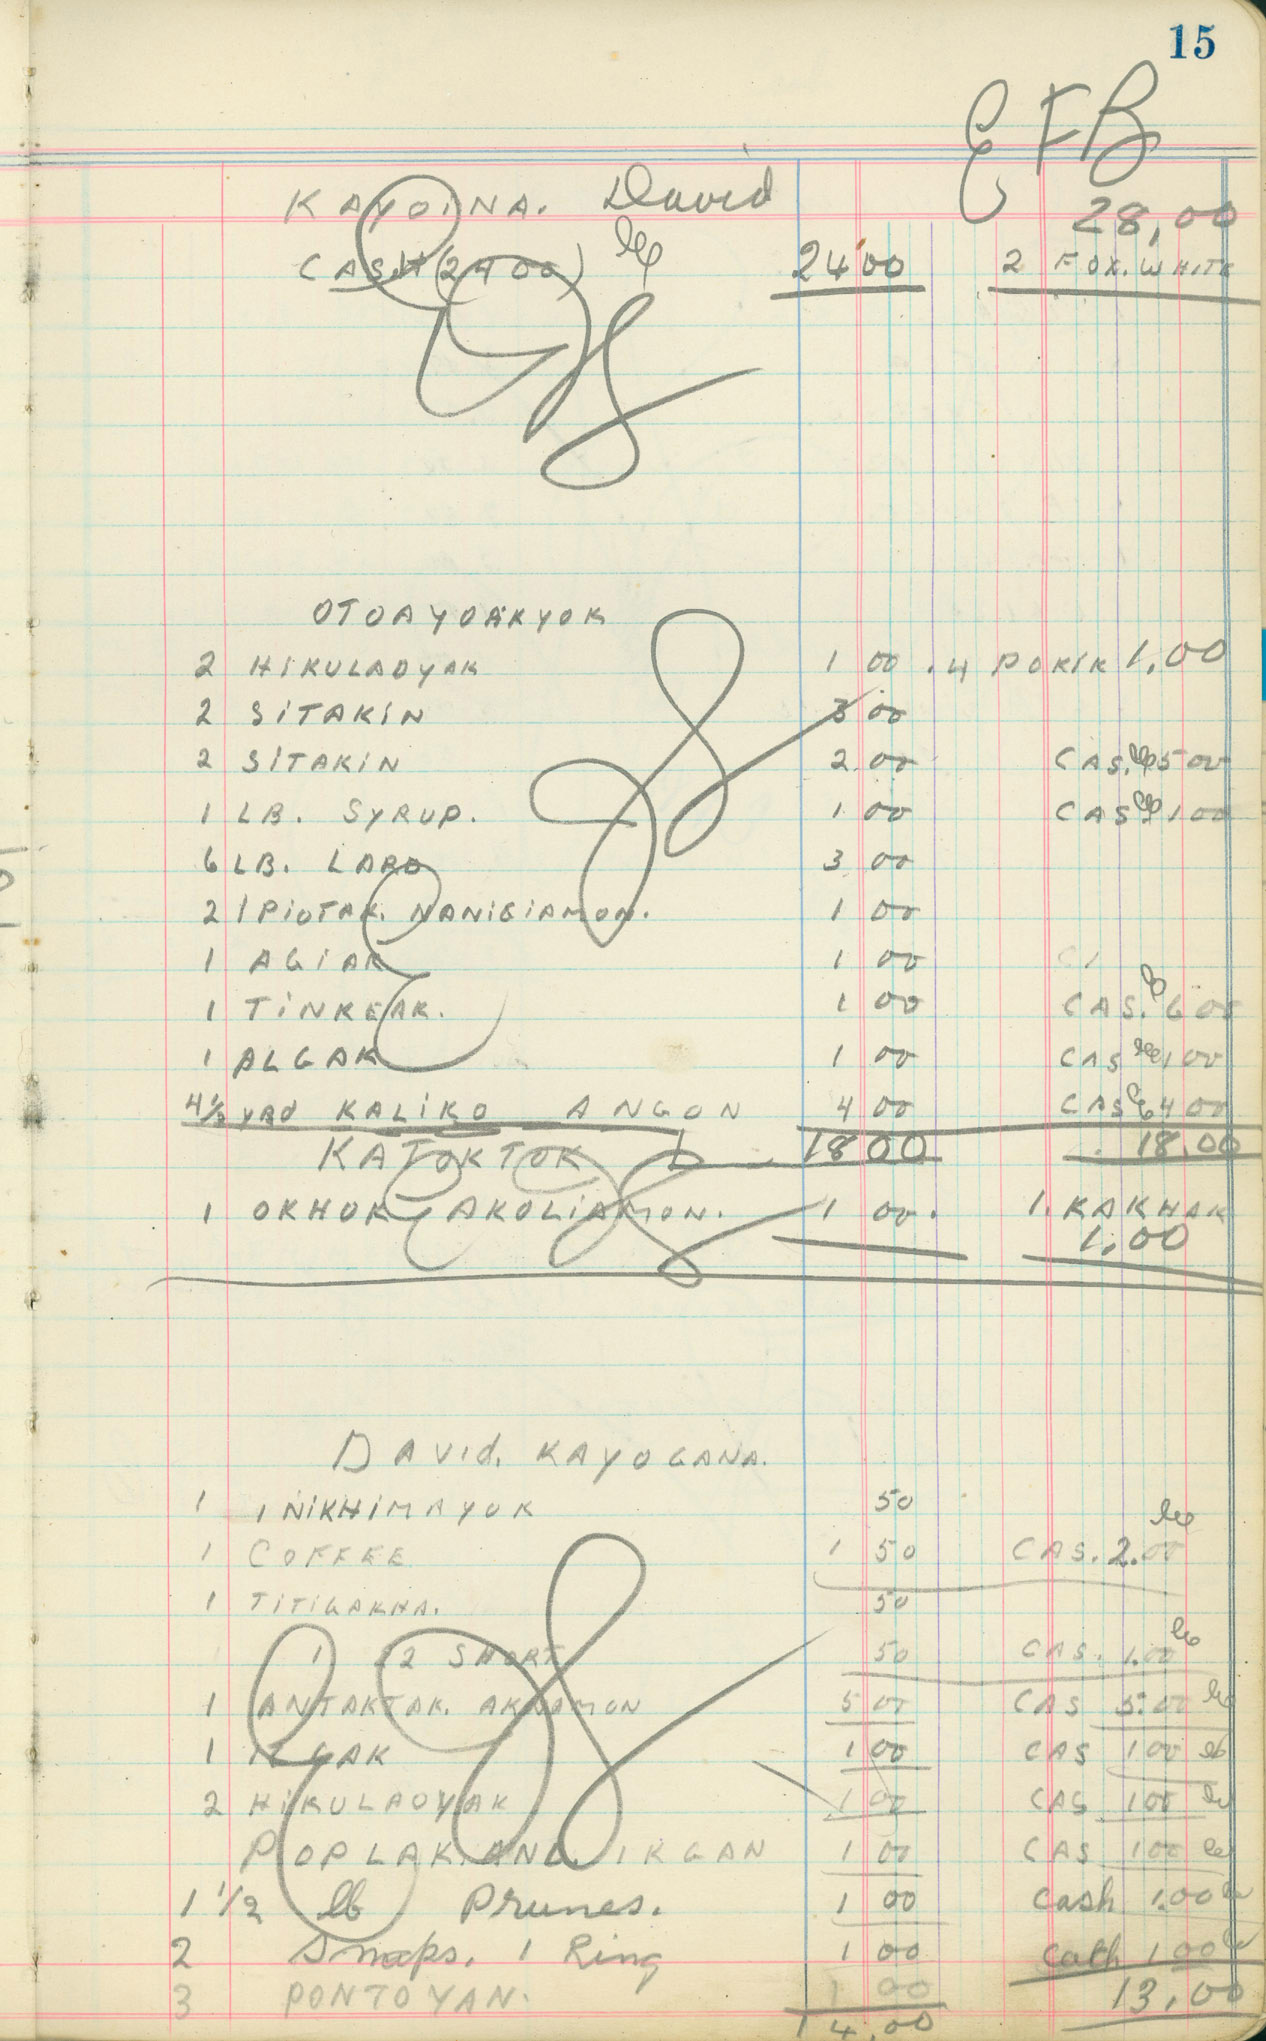 15
EFB
KAYOINA. David
28,00
CASH (2400) 24 00 2 FOX. WHITE
OTOAYOAKYOK
2 HIKULAOYAK 1 00 . 4 POKIK 1,00
2 SITAKIN 3 00
2 SITAKIN 2 00 CAS. 5 00
1 LB. SYRUP. 1 00 CAS 1 00
6 LB. LARD 3 00
2 IPIUTAK. NANIGIAMON. 1 00
1 AGIAK 1 00
1 TINKEAK. 1 00 CAS. 6 00
1 ALGAK 1 00 CAS 1 00
4½ YRD KALIKO ANGON 4 00 CAS 4 00
KATOKTOK 18 00 18.00
1 OKHOK AKOLIAMON. 1 00. 1. KAKHAK
1.00
DAVID. KAYOGANA.
1 INIKHIMAYOK 50
1 COFFEE 1 50 CAS. 2.00
1 TITIGAKNA. 50
1 22 SHORT 50 CAS. 1.00
1 ANTAKTAK. AKNAMON 5 00 CAS 5.00
1 1 00 CAS 1 00
2 HIKULAOYAK 1 00 CAS 1 00
POPLAK AND. IKGAN 1 00 CAS 1 00
1 1/2 lb Prunes. 1 00 Cash 1.00
2 Snaps. 1 Ring 1 00 Cash 1 00
3 PONTOYAN. 1 00 13,00
14.00